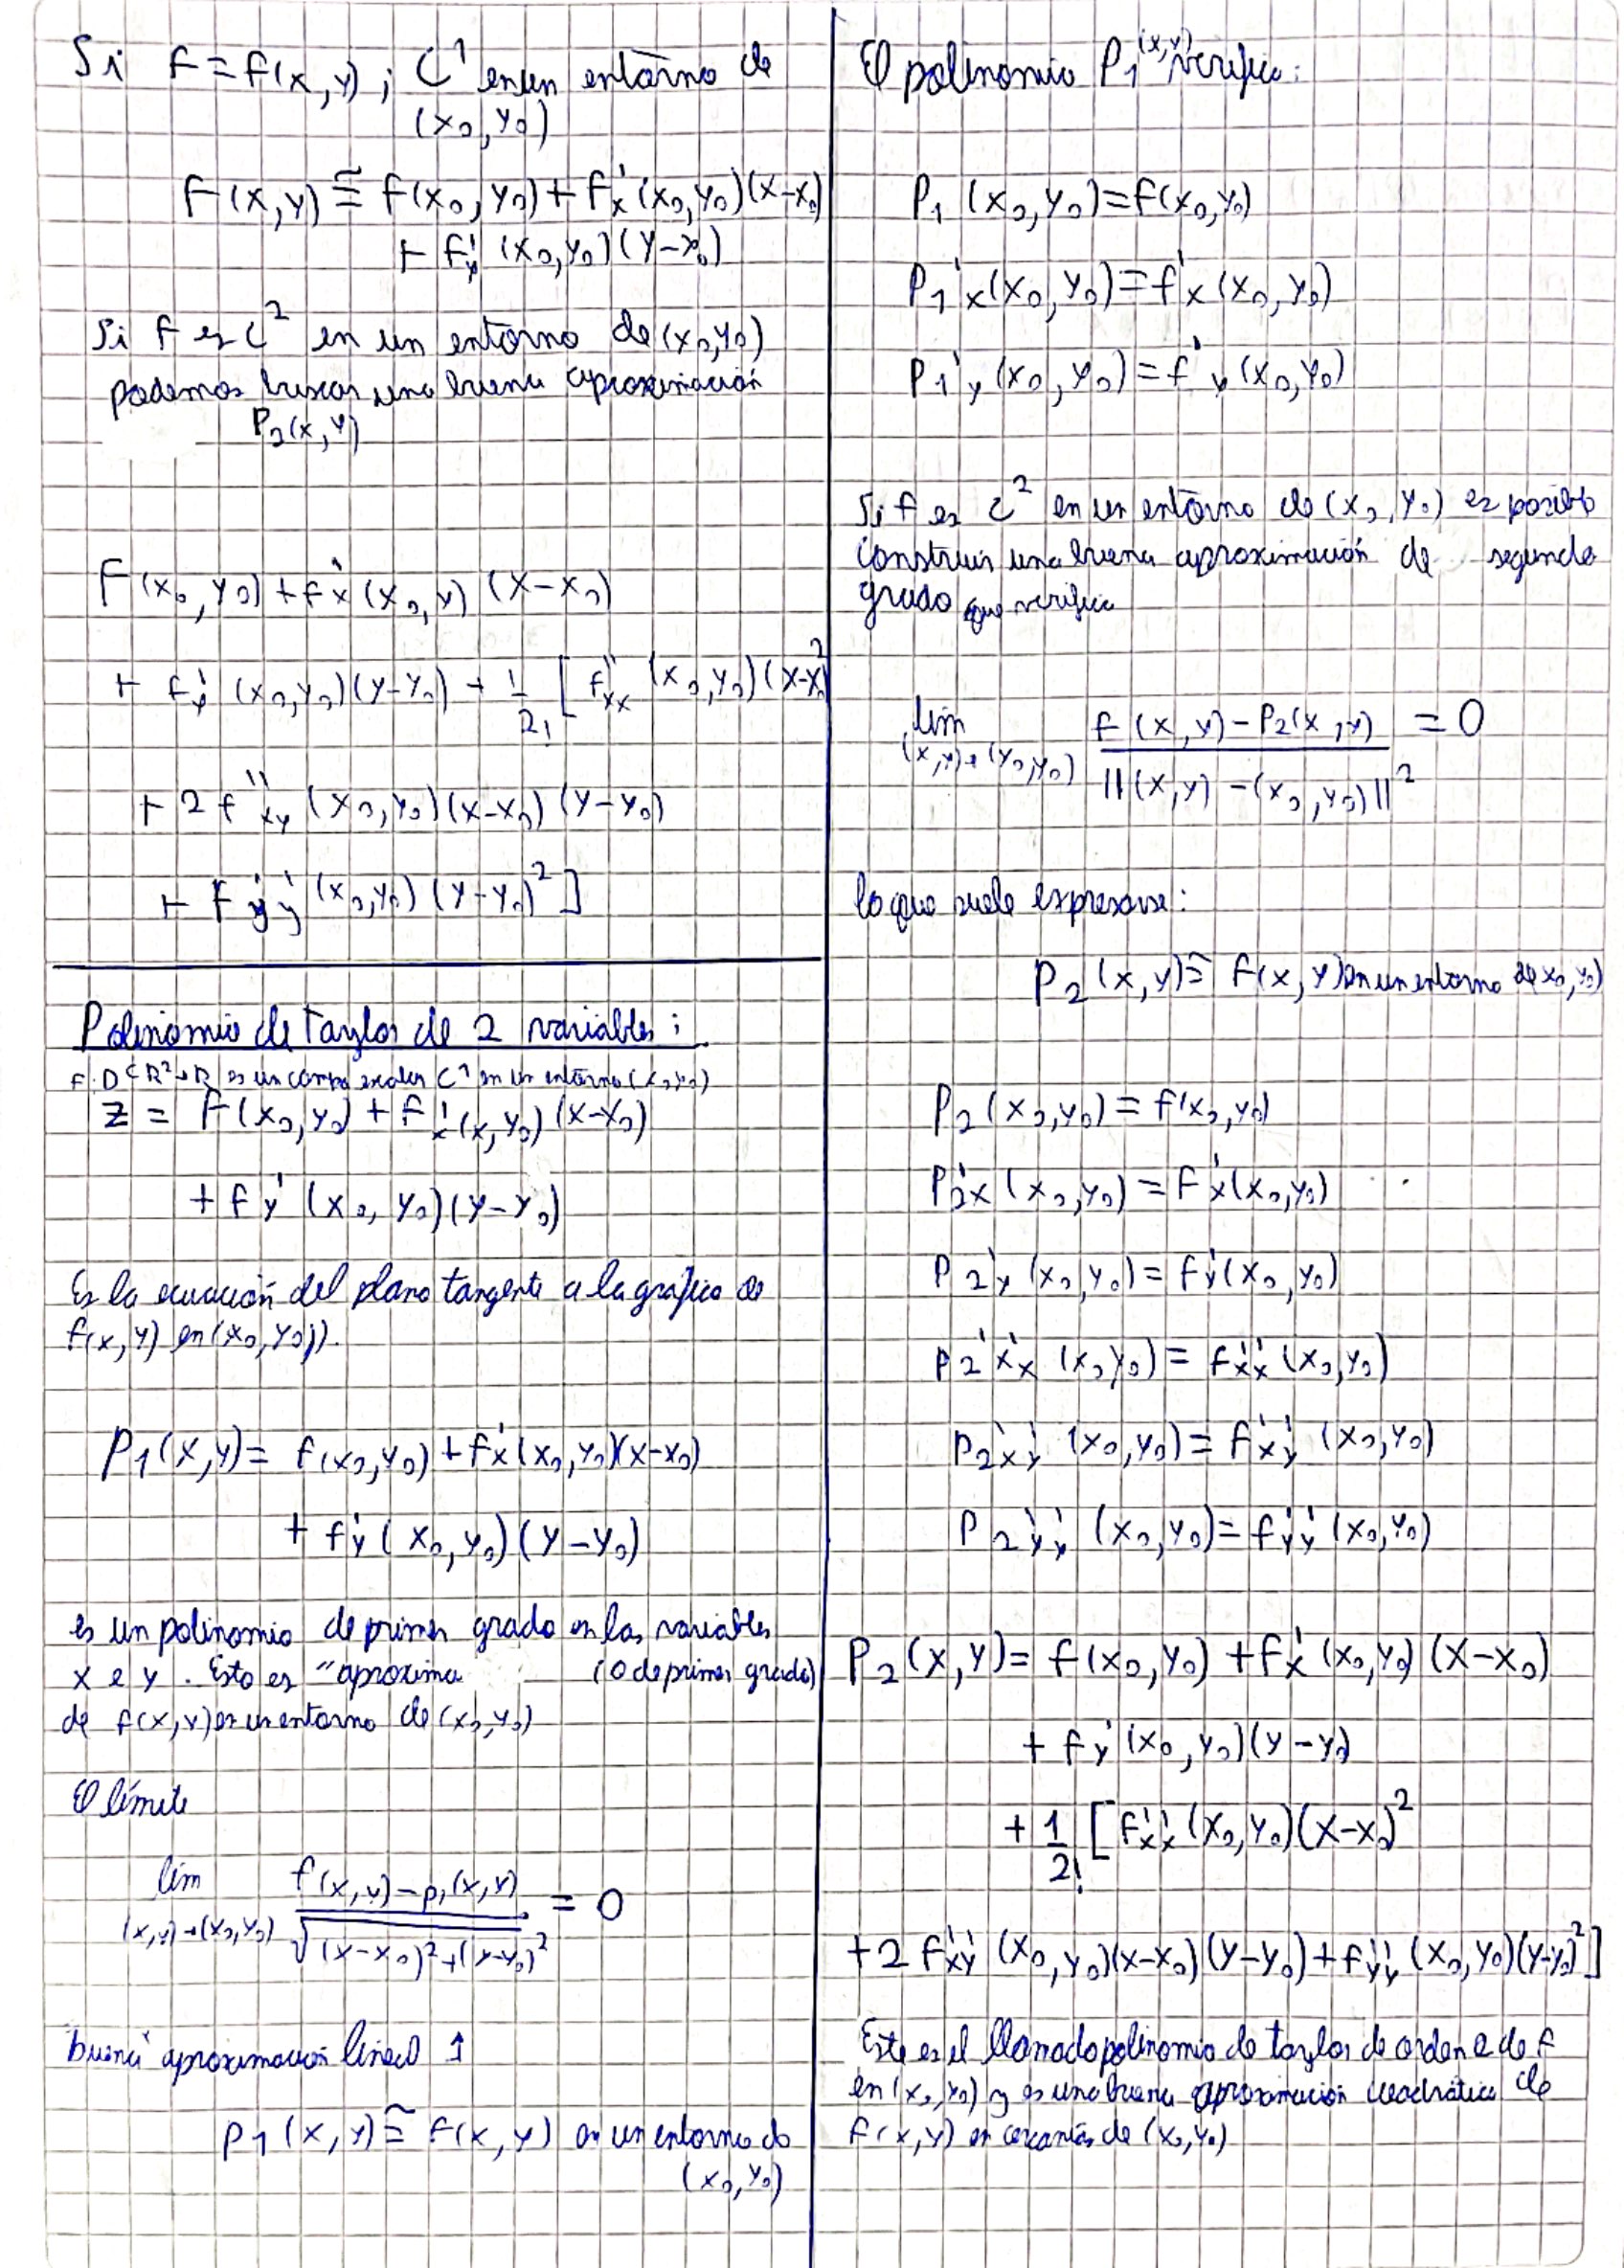 Si F=f(x,y); C¹ en un entorno de
(x₀,y₀)
F(x,y) ≅ f(x₀,y₀)+f'x(x₀,y₀)(x-x₀)
+ f'y (x₀,y₀)(y-y₀)
Si f es C² en un entorno de (x₀,y₀)
podemos buscar una buena aproximación
P₂(x,y)
F(x₀,y₀)+f'x (x₀,y) (x-x₀)
+ f'y (x₀,y₀)(y-y₀) + 1/2! [ f''xx (x₀,y₀)(x-x₀)²
+ 2 f''xy (x₀,y₀)(x-x₀)(y-y₀)
+ f''yy (x₀,y₀) (y-y₀)² ]
Polinomio de Taylor de 2 variables:
F:D⊂R²→R es un campo escalar C¹ en un entorno (x₀,y₀)
z = F(x₀,y₀) + f'x(x,y₀)(x-x₀)
+ f'y (x₀,y₀)(y-y₀)
Es la ecuación del plano tangente a la grafica de
f(x,y) en (x₀,y₀)).
P₁(x,y)= f(x₀,y₀)+f'x(x₀,y₀)(x-x₀)
+ f'y (x₀,y₀)(y-y₀)
es un polinomio de primer grado en las variables
x e y. Esto es "aproxima (o de primer grado)
de f(x,y) en un entorno de (x₀,y₀)
El límite
lím f(x,y)-p₁(x,y) / √(x-x₀)²+(y-y₀)² = 0
(x,y)→(x₀,y₀)
buena aproximación lineal ↑
P₁(x,y) ≅ f(x,y) en un entorno de
(x₀,y₀)
El polinomio P₁(x,y) verifica:
P₁ (x₀,y₀)=f(x₀,y₀)
P₁'x(x₀,y₀)=f'x(x₀,y₀)
P₁'y (x₀,y₀)=f'y (x₀,y₀)
Si f es C² en un entorno de (x₀,y₀) es posible
construir una buena aproximación de segundo
grado que verifica
lim f(x,y)-P₂(x,y) / ||(x,y)-(x₀,y₀)||² = 0
(x,y)→(x₀,y₀)
lo que suele expresarse:
P₂(x,y) ≅ F(x,y) en un entorno de (x₀,y₀)
P₂(x₀,y₀)=f(x₀,y₀)
P₂'x (x₀,y₀)=f'x(x₀,y₀)
P₂'y (x₀,y₀)=f'y(x₀,y₀)
P₂''xx (x₀,y₀)=f''xx (x₀,y₀)
P₂''xy (x₀,y₀)=f''xy (x₀,y₀)
P₂''yy (x₀,y₀)=f''yy (x₀,y₀)
P₂(x,y)= f(x₀,y₀) +f'x (x₀,y₀) (x-x₀)
+ f'y (x₀,y₀)(y-y₀)
+ 1/2! [f''xx (x₀,y₀)(x-x₀)²
+2 f''xy (x₀,y₀)(x-x₀)(y-y₀)+f''yy (x₀,y₀)(y-y₀)²]
Este es el llamado polinomio de taylor de orden 2 de f
en (x₀,y₀) y es una buena aproximación cuadrática de
f(x,y) en cercanías de (x₀,y₀)